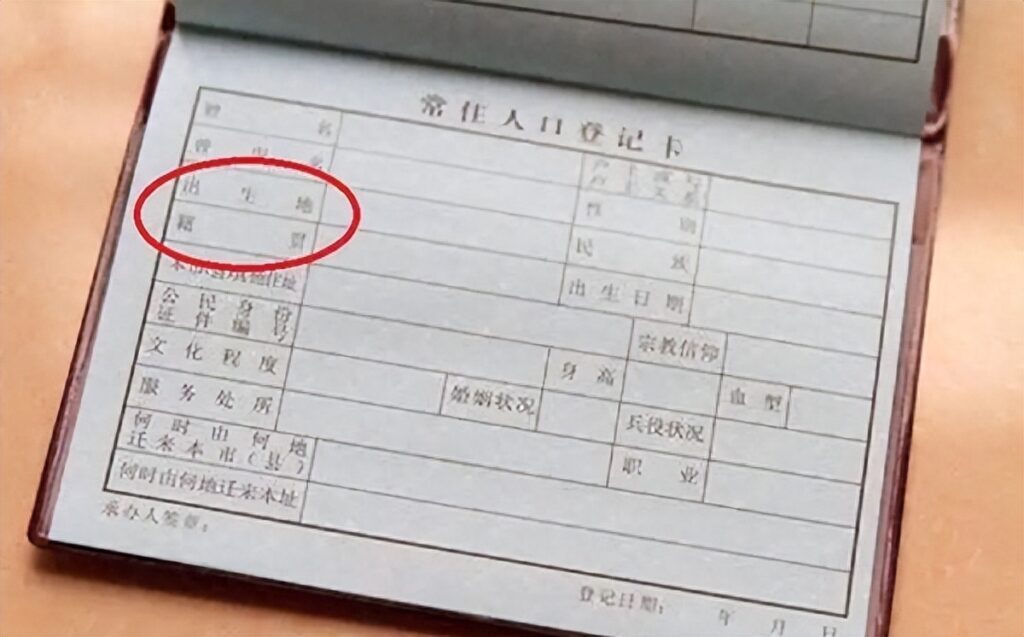 常住人口登记卡
姓名
曾用名 户主或与户主关系
出生地 性别
籍贯 民族
本市(县)其他住址 出生日期
公民身份证件编号 宗教信仰
文化程度 身高 血型
服务处所 婚姻状况 兵役状况
何时由何地迁来本市(县) 职业
何时由何地迁来本址
承办人签章：
登记日期： 年 月 日